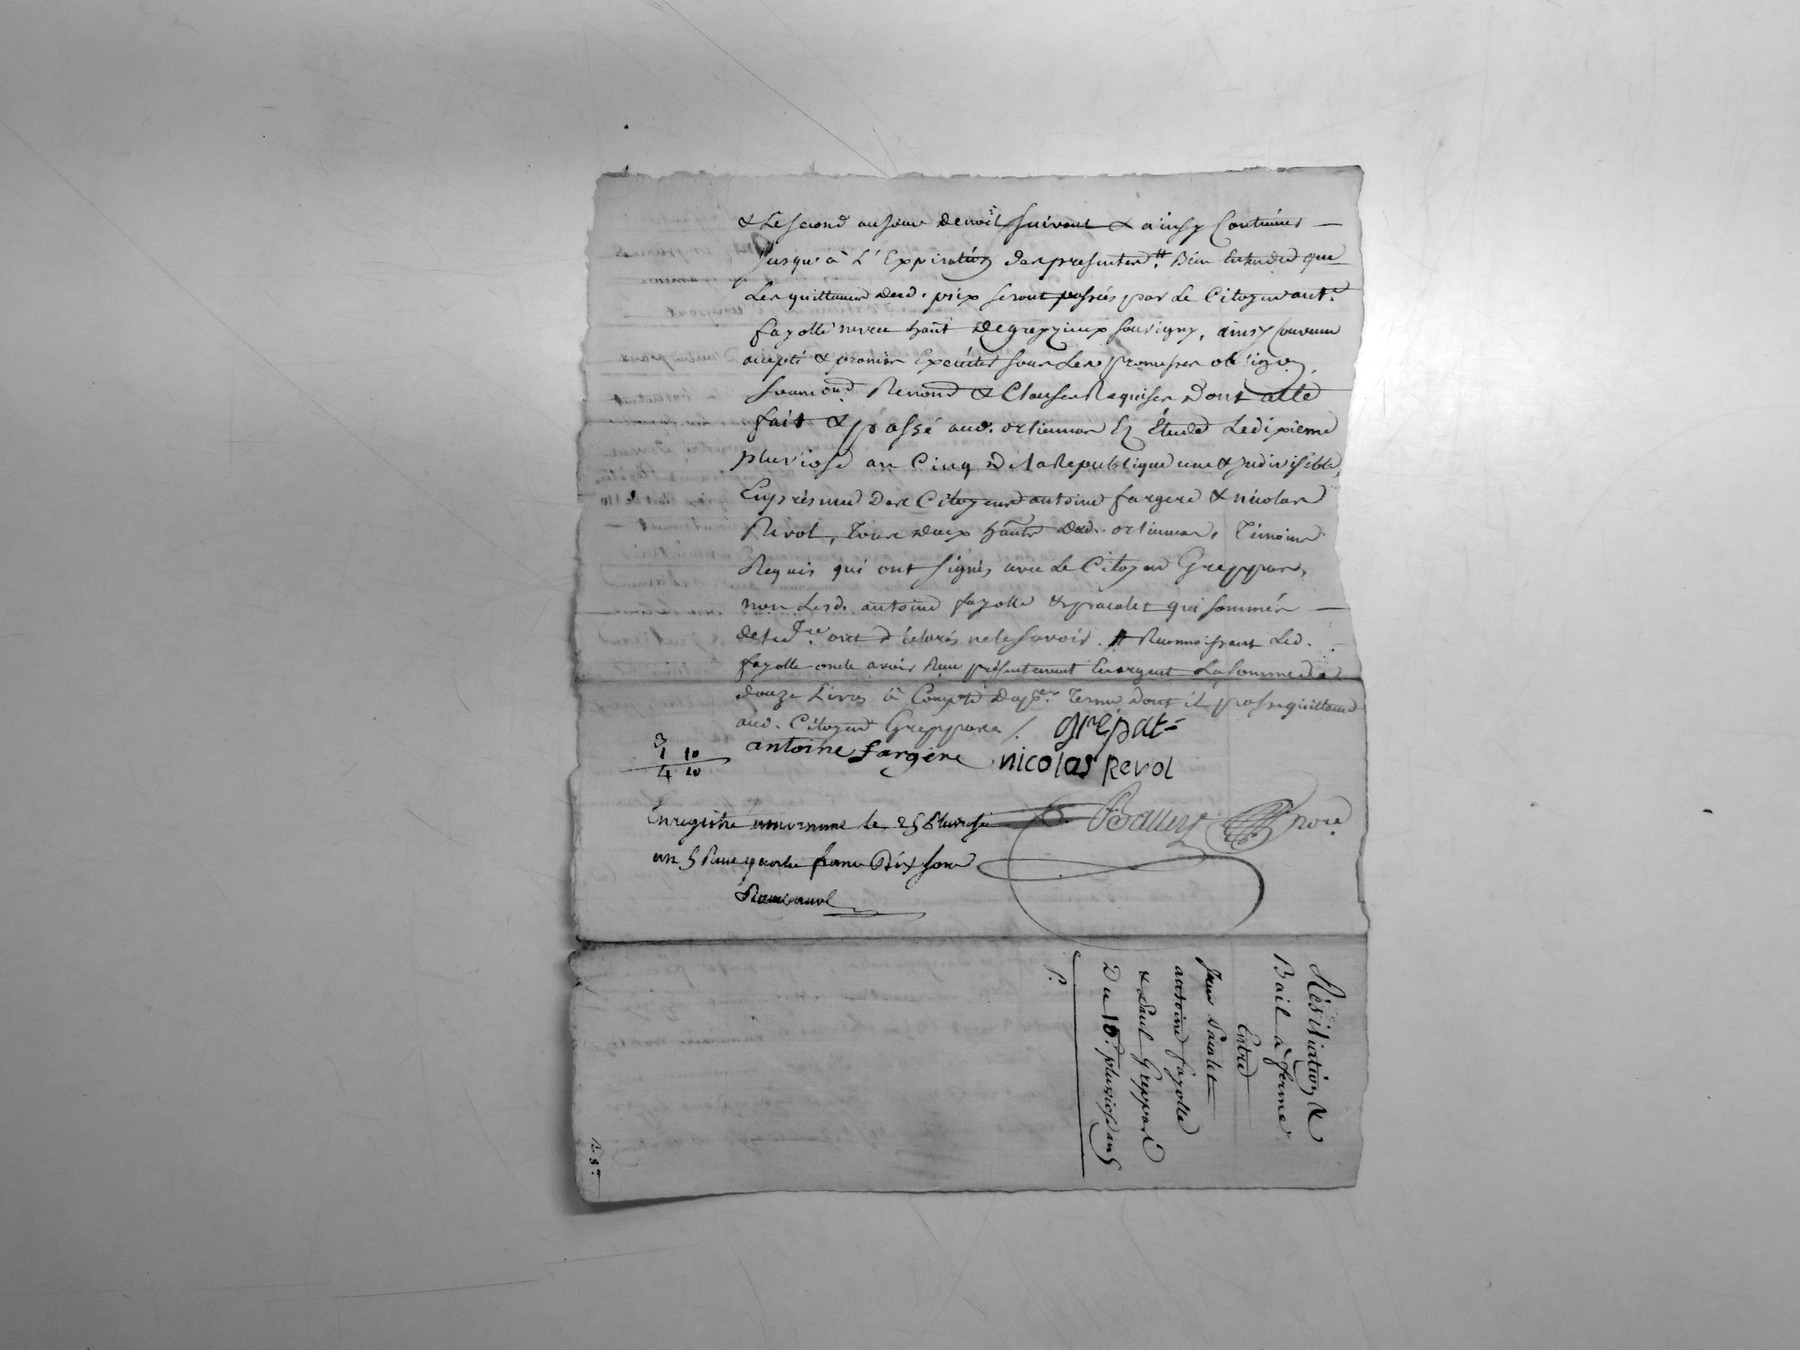 & Le second au jour de noël suivant & ainsy Continuer
Jusqu'à L'Expiration des presentes # Bien Entendu que
Les quittances dud. prix seront passées, par Le Citoyen ant.e
fayolle neveu habt de grezzieux souvigny, ainsy Convenu
accepté & promis Exécuter sous Les promesses obligon
soumons Renond & Clauses Requises Dont acte
fait & passé aud. Ez Étude Le dixieme
pluviose an Cinq de La Republique une & Indivisible,
En présence Des Citoyens antoine fargere & nicolas
Revol, Tous deux habts dud. Témoins
Requis qui ont signés avec Le Citoyen Greppat,
non Lesd. antoine fayolle & qui sommés
de le fre ont déclarés ne le savoir. # Reconnoissant Led.
fayolle oncle avoir Reçu présentement En argent La somme de
douze Livres à Compte du per. Terme Dont il passe quittance
aud. Citoyen Greppat /. grepat
antoine fargère nicolas Revol
3
1 10
4 10
Enregistré le 25 Pluviose
an 5 Reçu quatre francs Dix sous
Résiliation &
Bail à ferme
Entre
Jean
antoine fayolle
& Paul Greppat
Du 10.e pluviose an 5